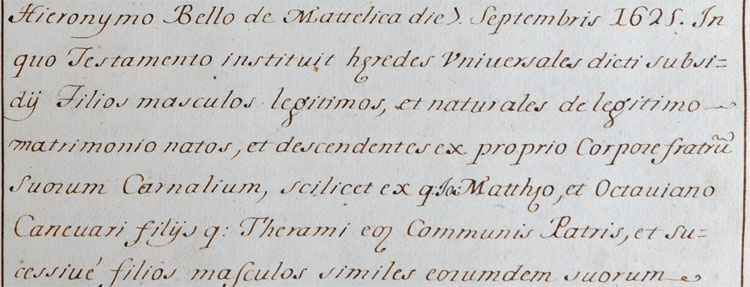 Hieronymo Bello de Mattelica die 7. Septembris 1625. In
quo Testamento instituit hęredes Vniuersales dicti subsi=
dij Filios masculos legitimos, et naturales de legitimo
matrimonio natos, et descendentes ex proprio Corpore fratrū
suorum Carnalium, scilicet ex q: Io: Matthęo, et Octauiano
Caneuari filijs q: Therami eoȝ Communis Patris, et su=
cessiué filios masculos similes eorumdem suorum